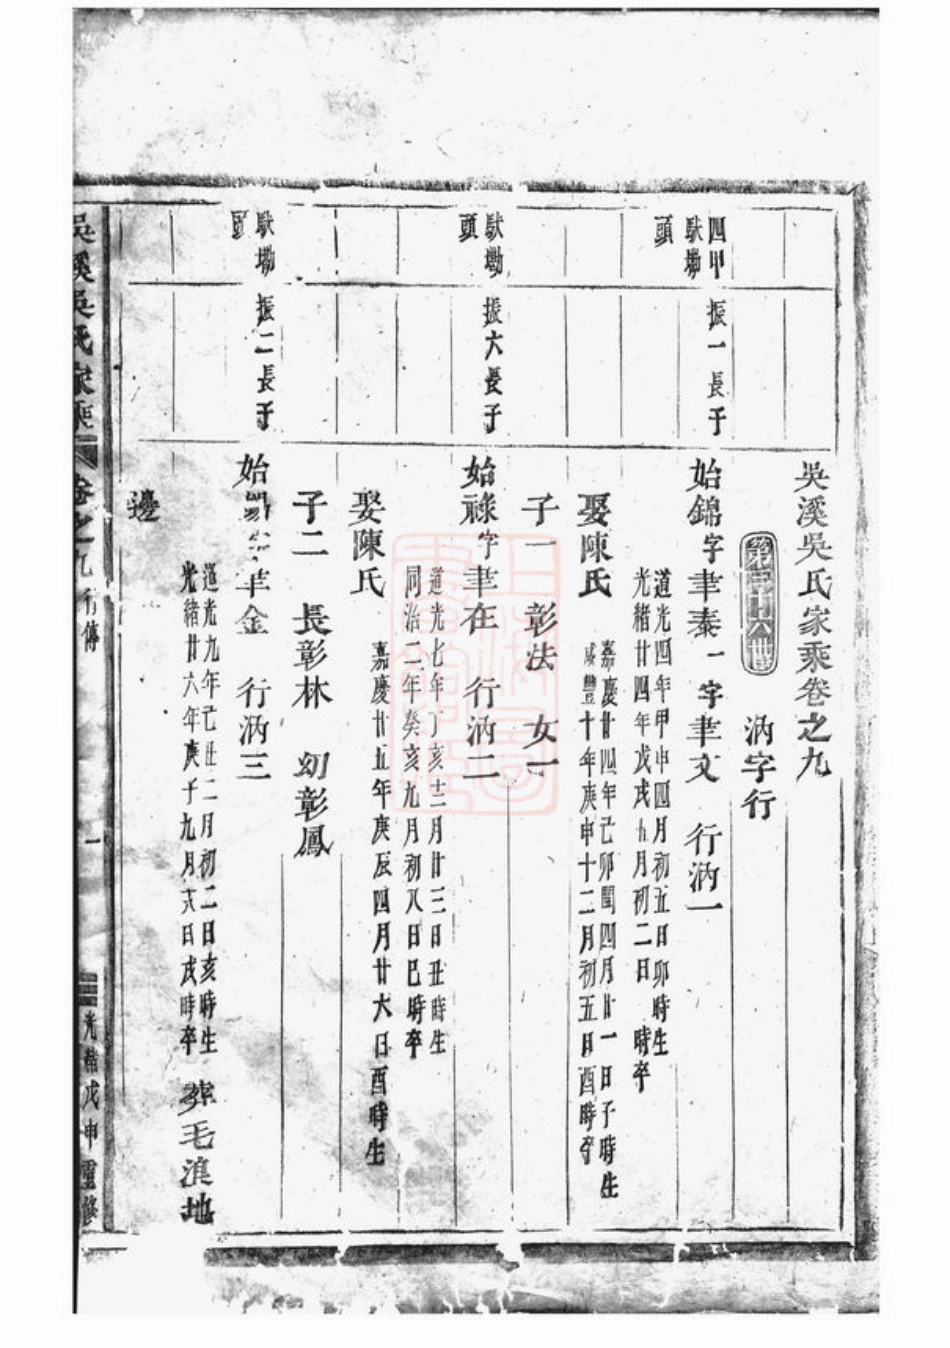 吳溪吳氏家乘卷之九
汭字行
四甲
馱塘
頭
振一長子
始錦字聿泰一字聿文 行汭一
道光四年甲申四月初五日卯時生
光緒廿四年戊戌九月初二日 時卒
娶陳氏
嘉慶廿四年己卯閏四月廿一日子時生
咸豐十年庚申十二月初五日酉時卒
子一 彰法 女一
馱塘
頭
振六長子
始祿字聿在 行汭二
道光七年丁亥十二月廿三日丑時生
同治二年癸亥九月初八日巳時卒
娶陳氏
嘉慶廿五年庚辰四月廿六日酉時生
子二 長彰林 幼彰鳳
馱塘
頭
振二長子
始 字聿金 行汭三
道光九年己丑二月初二日亥時生
光緒廿六年庚子九月 日戌時卒
葬毛滇地
邊
吳溪吳氏家乘 卷之九 行傳 一 光緒戊申重修